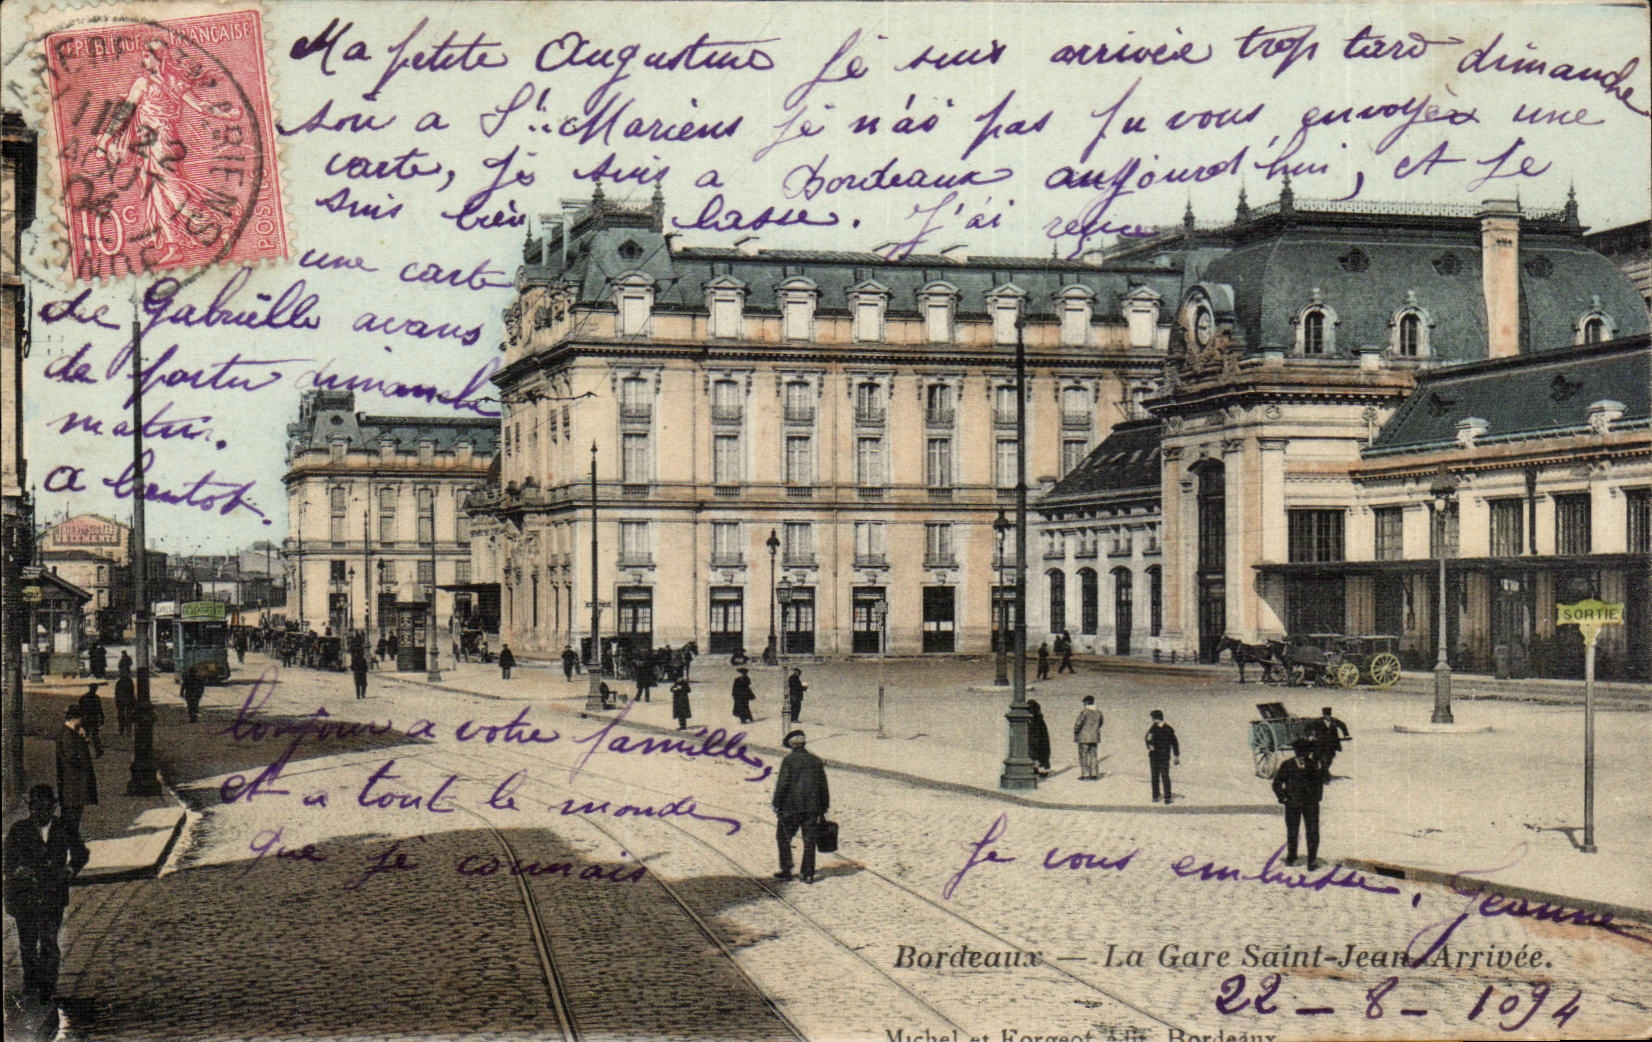 Ma petite Augustine Je suis arrivée trop tard dimanche
soir a St. Mariens je n'ai pas pu vous envoyer une
carte, je suis a Bordeaux aujourd'hui, et je
suis bien lasse. J'ai reçue
une carte
de Gabrielle avans
de partir dimanche
matin.
a bientot.
bonjour a votre famille,
et a tout le monde
que je connais
Je vous embrasse. Jeanne
22 - 8 - 1094
REPUBLIQUE FRANÇAISE
10c
POSTES
22
VETEMENTS
SORTIE
Bordeaux — La Gare Saint-Jean Arrivée.
Michel et Forgeot édit. Bordeaux